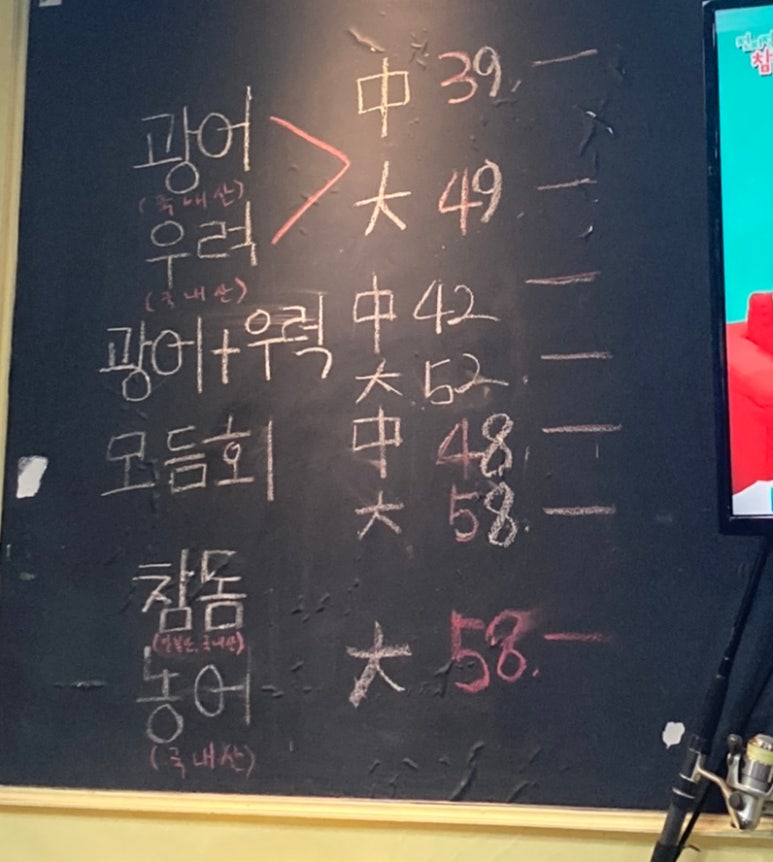 광어 中 39.—
(국내산) 大 49 —
우럭
(국내산)
광어+우럭 中 42 —
大 52 —
모듬회 中 48. —
大 58. —
참돔
(일본산, 국내산) 大 58.—
농어
(국내산)
참